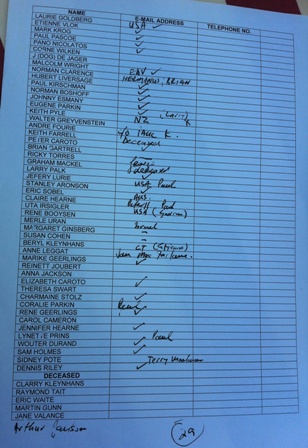 NAME E-MAIL ADDRESS TELEPHONE NO.
LAURIE GOLDBERG
ETIENNE VLOK USA ✓
MARK KROG ✓
PAUL PASCOE ✓
PANO NICOLATOS ✓
CORNE WILKEN ✓
J (DOG) DE JAGER
MALCOLM WRIGHT
NORMAN CLARENCE EAV ✓
HUBERT LIVERSAGE BRIAN
PAUL KIRSCHMAN ✓
NORMAN BOSHOFF ✓
JOHNNY ESMANY ✓
EUGENE PARKIN ✓
KEITH PYLE ✓
WALTER GREYVENSTEIN NZ
ANDRE FOURIE
KEITH FARRELL PAUL K.
PETER CAROTO Deceased
BRIAN GARTRELL
RICKY TORRES
GRAHAM MACKEL
LARRY PALK
JEFERY LURIE ✓
STANLEY ARONSON USA Paul
ERIC SOBEL ✓
CLAIRE HEARNE Aus
UTA IRSIGLER Paul
RENE BOOYSEN USA
MERLE URAN
MARGARET GINSBERG Israel
SUSAN COHEN –
BERYL KLEYNHANS –
ANNE LEGGAT CT
MARIKE GEERLINGS
REINETT JOUBERT ✓
ANNA JACKSON
ELIZABETH CAROTO ✓
THERESA SWART
CHARMAINE STOLZ ✓
CORALIE PARKIN ✓
RENE GEERLINGS ✓
CAROL CAMERON
JENNIFER HEARNE ✓
LYNETTE PRINS Paul
WOUTER DURAND ✓
SAM HOLMES ✓
SIDNEY POTE Terry
DENNIS RILEY ✓
DECEASED
CLARRY KLEYNHANS
RAYMOND TAIT
ERIC WAITE
MARTIN GUNN
JANE VALANCE
Arthur 29